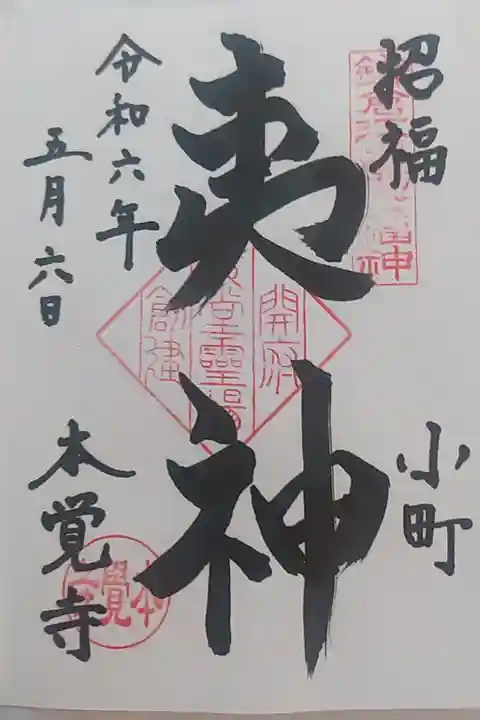 招福
小町
夷神
開府
夷堂霊場
創建
令和六年
五月六日
本覚寺
本覺寺